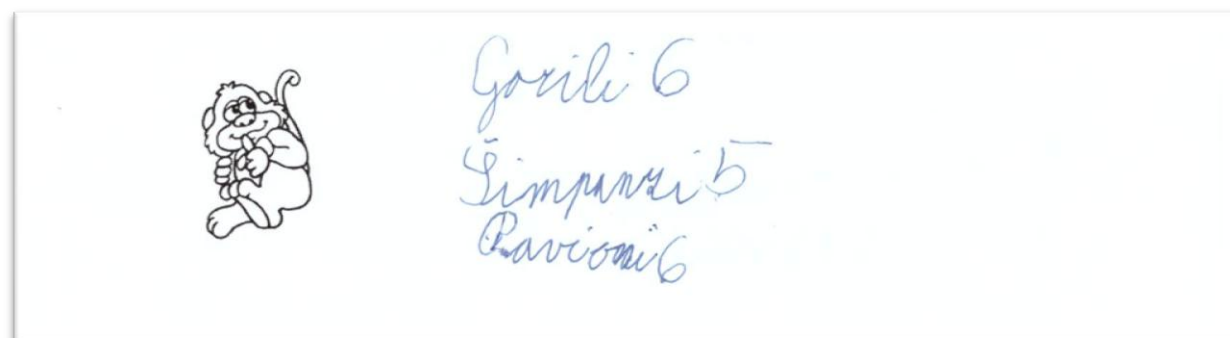 Gorili 6
Šimpanzi 5
Pavioni 6